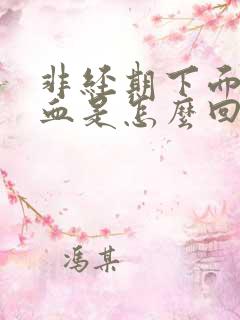 非经期下面
血是怎麼回
馮某